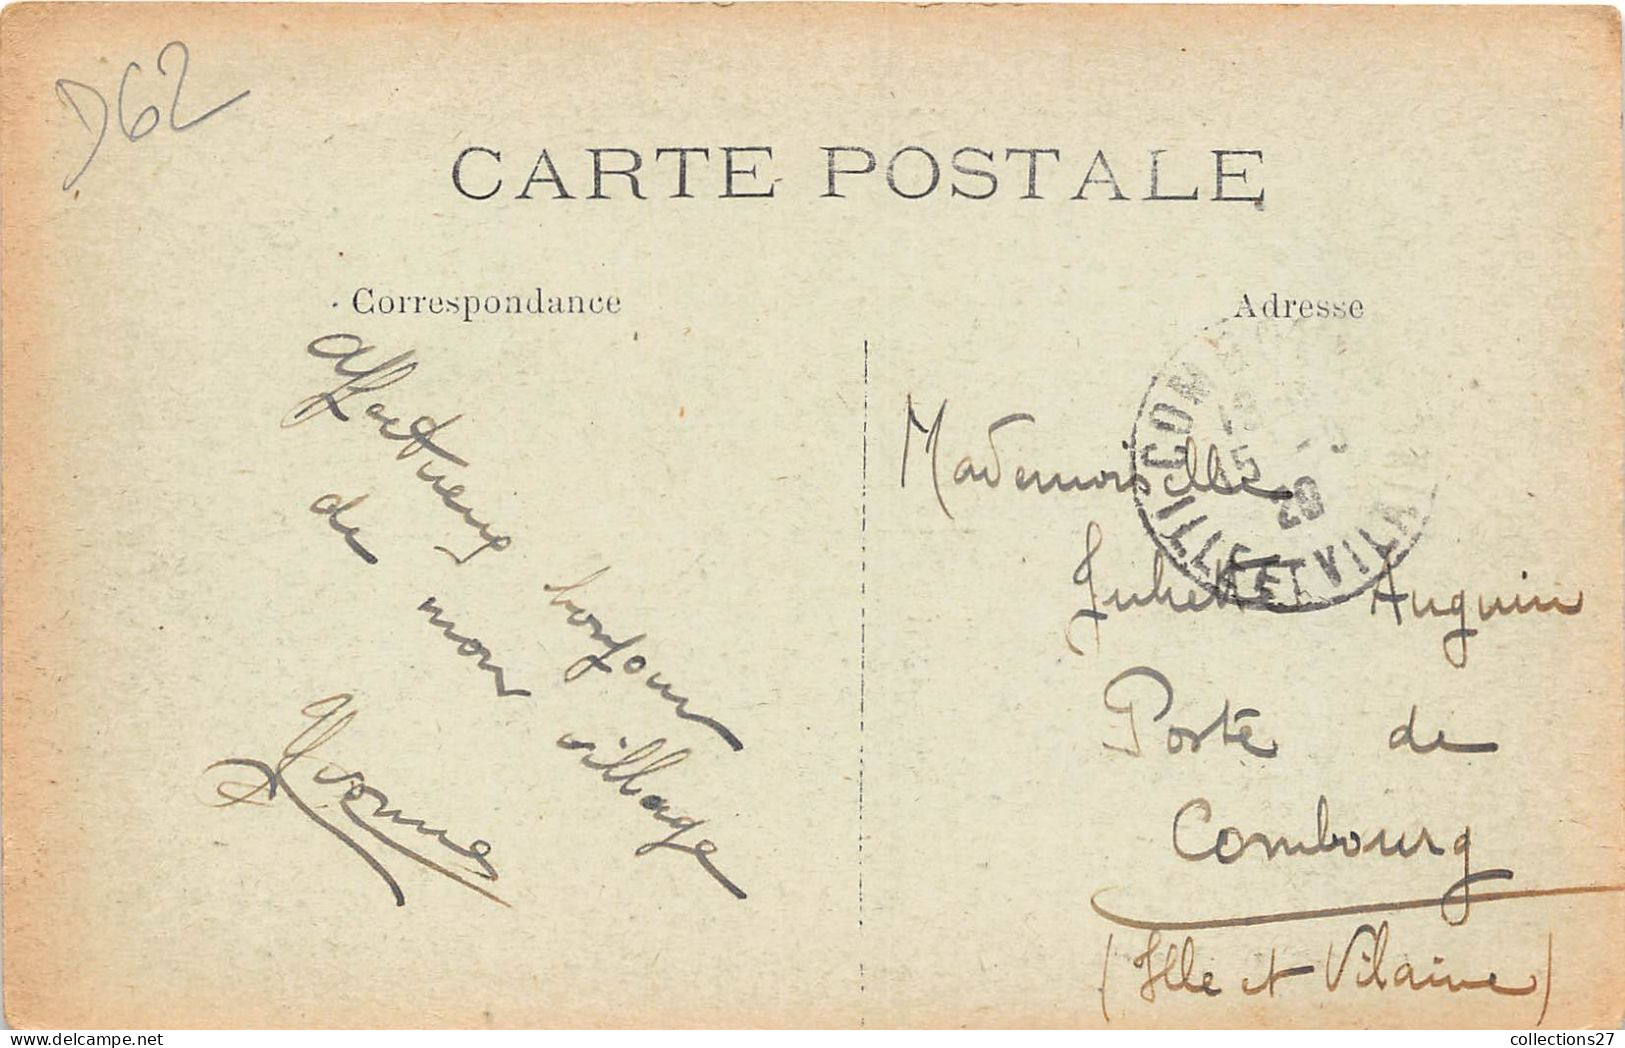 D62
CARTE POSTALE
Correspondance
Affectueux bonjour
de mon village
Yvonne
Adresse
Mademoiselle
Juliette Auguin
Poste de
Combourg
(Ille et Vilaine)
ILLE ET VILAINE
15
20
collections27